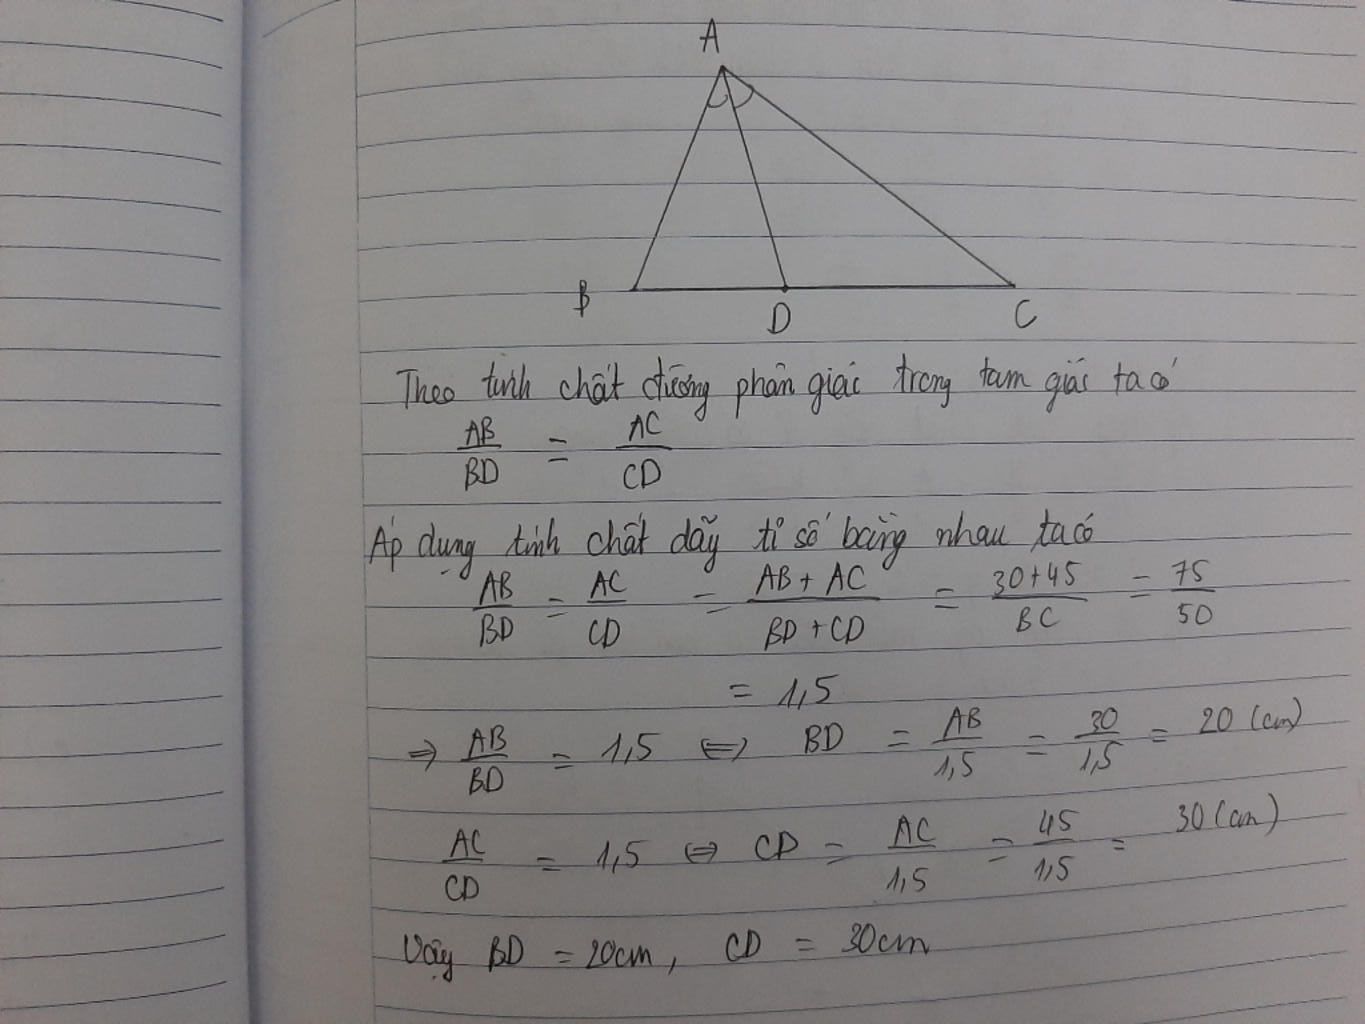 A
B
D
C
Theo tính chất đường phân giác trong tam giác ta có
AB/BD = AC/CD
Áp dụng tính chất dãy tỉ số bằng nhau ta có
AB/BD = AC/CD = AB + AC/BD + CD = 30+45/BC = 75/50
= 1,5
⇒ AB/BD = 1,5 ⇔ BD = AB/1,5 = 30/1,5 = 20 (cm)
AC/CD = 1,5 ⇔ CD = AC/1,5 = 45/1,5 = 30 (cm)
Vậy BD = 20cm, CD = 30cm